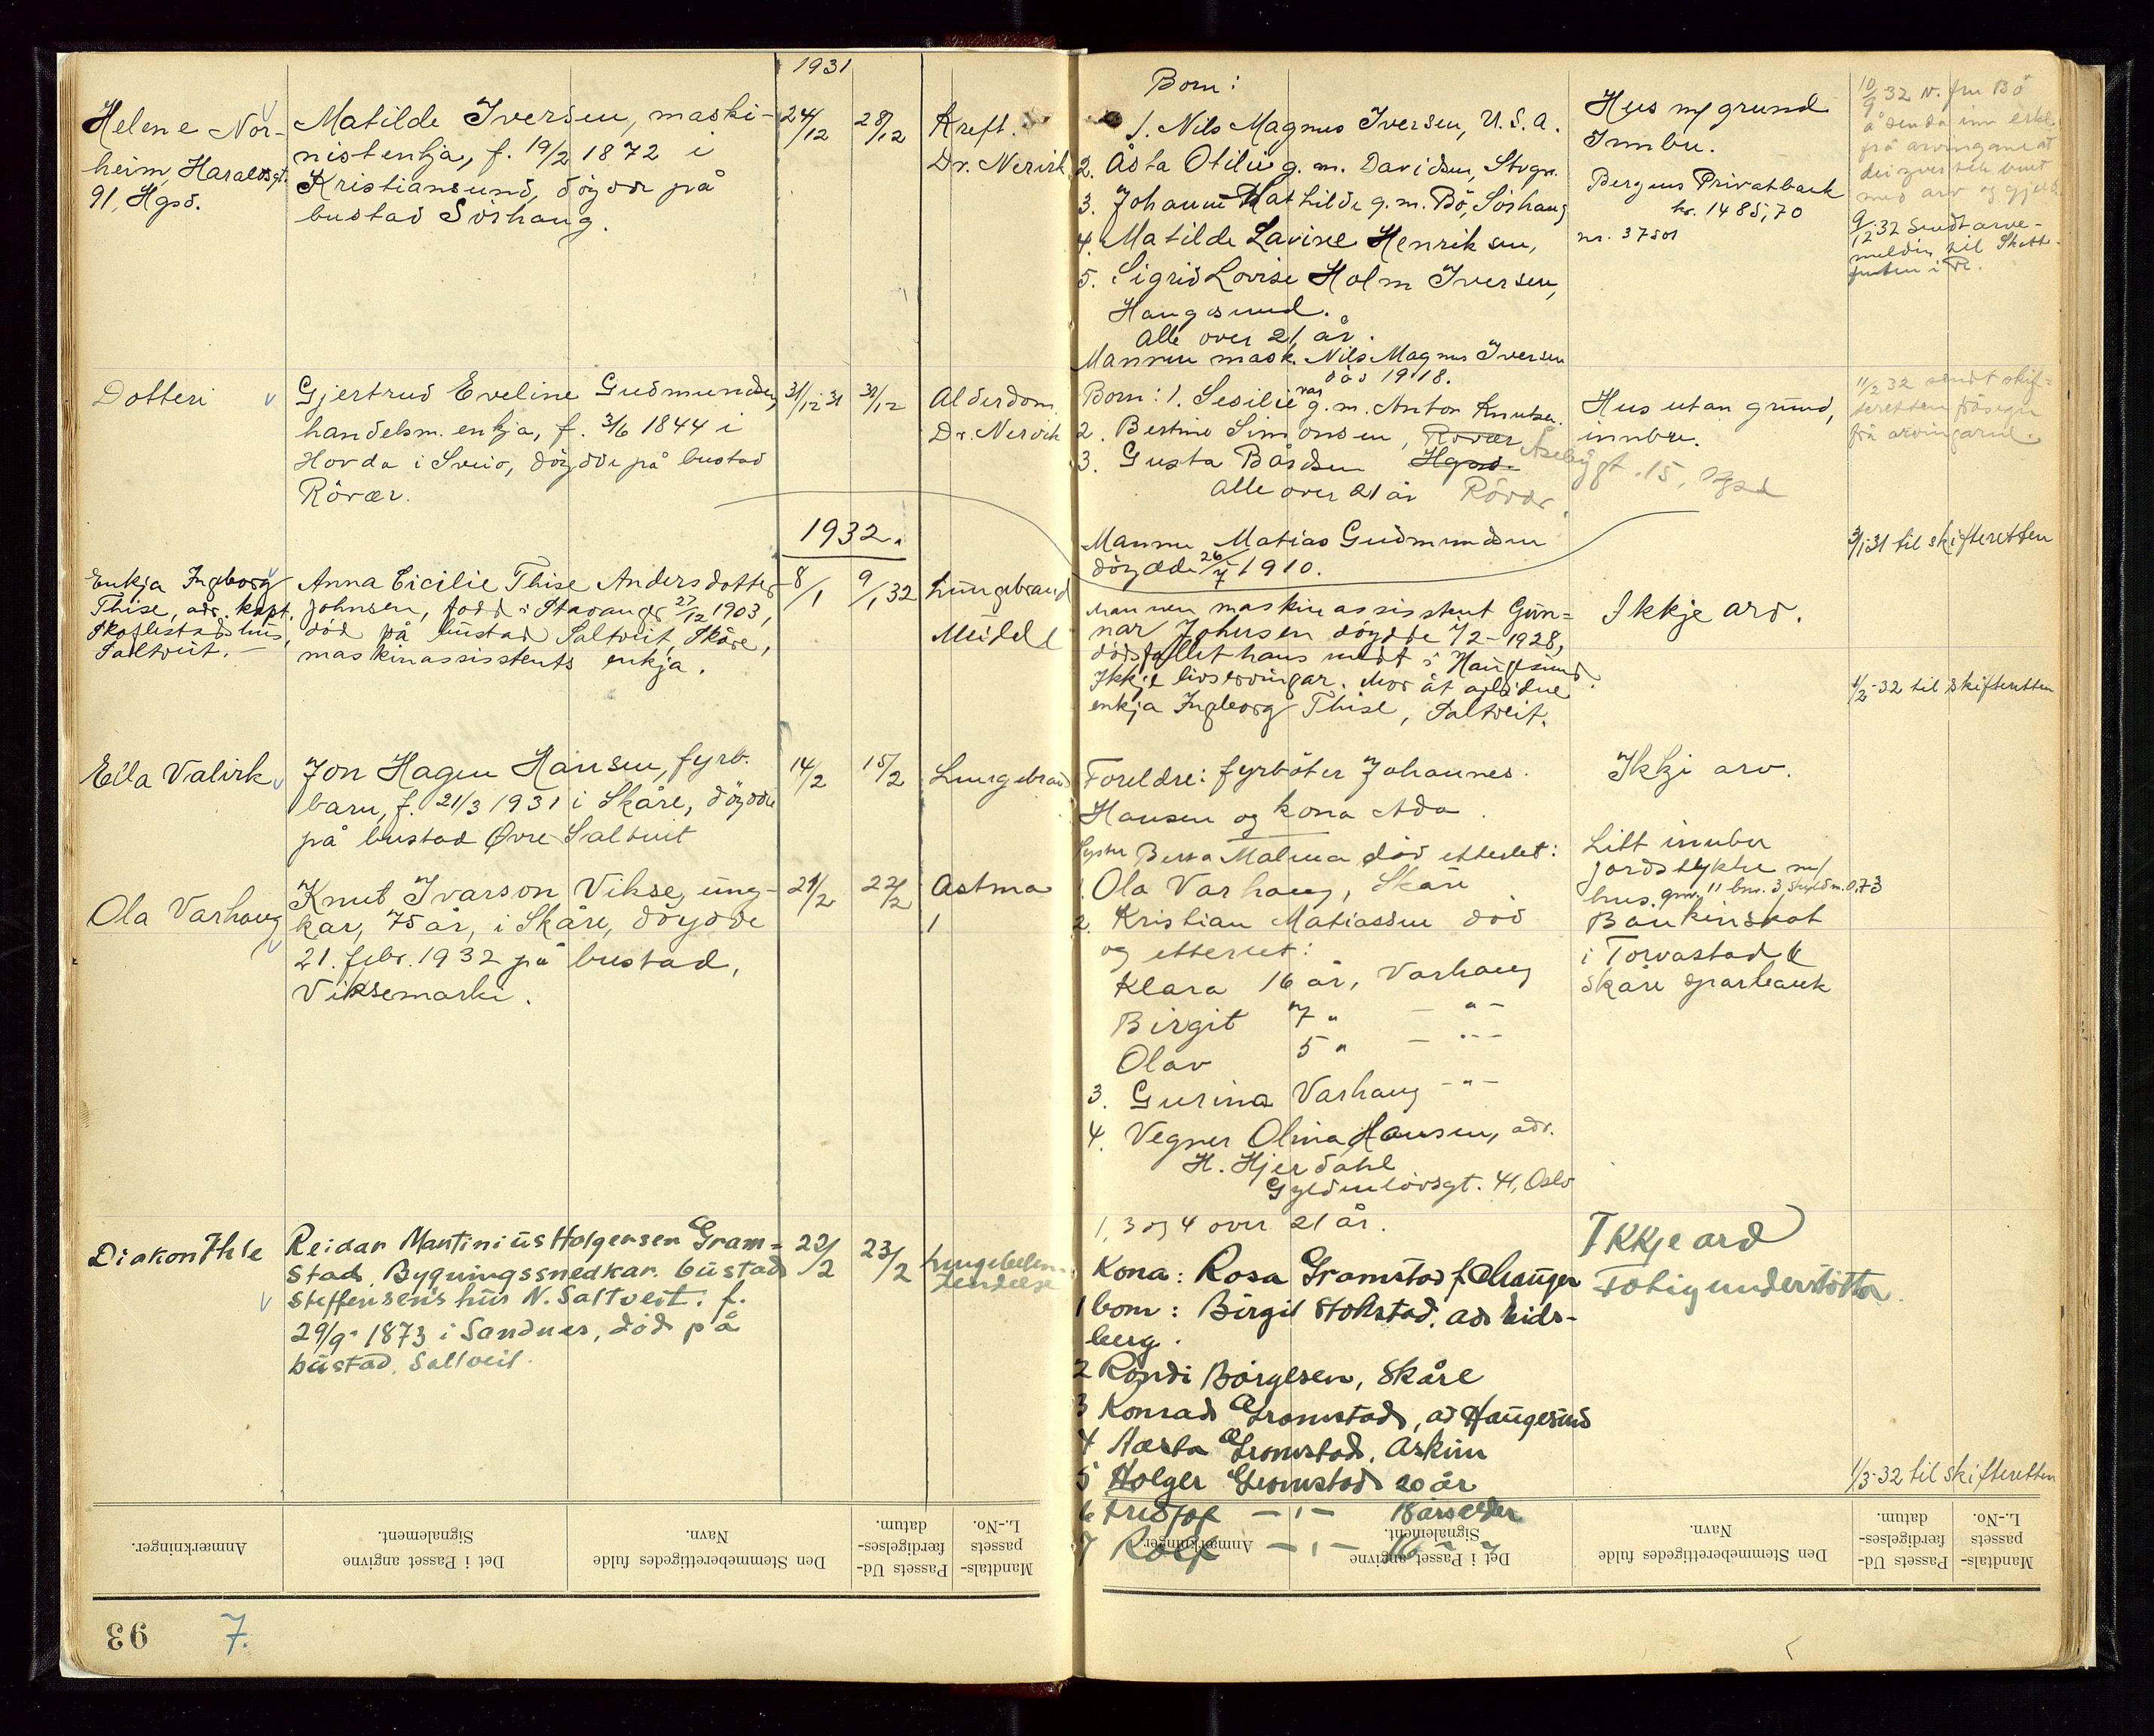 1931
Helene Nor-
heim, Haraldsgt.
91, Hgsd.
Matilde Iversen, maski-
nistenkja, f. 19/2 1872 i
Kristiansund, döydde på
bustad Sörhaug.
24/12
28/12
Kreft.
Dr. Nervik
Born:
1. Nils Magnus Iversen, U.S.A.
2. Åsta Otilie g.m. Davidsen, Stvgr.
3. Johanne Mathilde g.m. Bö, Sörhaug
4. Matilde Lavise Henriksen,
5. Sigrid Lovise Holm Iversen,
Haugesund.
Alle over 21 år.
Mannen mask. Nils Magnus Iversen
död 1918.
Hus m/ grund
Innbu.
Bergens Privatbank
kr. 1485,70
nr. 37501
10/9 32 N. fru Bö
å senda inn erkl.
frå arvingane at
dei
med arv og gjeld.
9/12 32 Sendt arve-
meldin til Skatte-
futen i R.
Dotteri
Gjertrud Eveline Gudmundsen,
handelsm. enkja, f. 3/6 1844 i
Hovda i Sveio, döydde på bustad
Rövær.
31/12 31
31/12
Alderdom
Dr. Nervik
Born: 1. Sesilie var g.m. Anton Knutsen.
2. Bertine Simonsen, Rövær
3. Gusta Bårdsen Hgsd.
gt. 15, Hgsd
Alle over 21 år Rövær.
Mannen Matias Gudmundsen
döydde 26/7 1910.
Hus utan grund,
innbu.
11/2 32 sendt skif-
teretten fråsegn
frå arvingane.
3/1-31 til skifteretten
1932.
Enkja Ingeborg
Thise, adr. kapt.
Skoflestads hus,
Saltveit. —
Anna Cicilie Thise Andersdotter
Johnsen, fødd i Stavanger 27/12 1903,
död på bustad Saltveit, Skåre,
maskinassistents enkja.
8/1
9/1 32
Lungebrand
Meidell
Mannen maskinassistent Gun-
nar Johnsen döydde 1/2-1928,
dödsfallet hans meldt i Haugesund.
Ikkje livsarvingar. Mor åt avlidne
enkja Ingeborg Thise, Saltveit.
Ikkje arv.
1/2-32 til skifteretten
Eila Valvik
Jon Hagen Hansen, fyrb.
barn, f. 21/3 1931 i Skåre, döydde
på bustad Øvre Saltveit
14/2
15/2
Lungebrand
Foreldre: fyrböter Johannes
Hansen og kona Ada.
Ikkje arv.
Ola Varhaug
Knut Ivarson Vikse, ung-
kar, 75 år, i Skåre, döydde
21. febr. 1932 på bustad,
Viksemarki.
21/2
22/2
Astma
Syster Berta Malena död etterlet:
1. Ola Varhaug, Skåre
2. Kristian Matiassen död
og etterlet:
Klara 16 år, Varhaug
Birgit 7 " — " —
Olav 5 " — " —
3. Gurina Varhaug — " —
4. Vegner Olina Hansen, adr.
H. Hjerdahl
Gyldenlövsgt. 41, Oslo
1, 3 og 4 over 21 år.
Litt innbu
jordstykke m/
hus. gnr. 11 bnr. 3 skyldm. 0,73
Bankinskot
i Torvastad &
Skåre sparbank
Diakon Ihle
Reidar Martinius Holgersen Gram-
stad. Bygningssnedkar. bustad
Steffensens hus N. Saltveit. f.
29/9- 1873 i Sandnes, död på
bustad, Saltveit.
22/2
23/2
Lungebeten-
dendelse
Kona: Rosa Gramstad f. Hauger
1 born: Birgit Stokstad. adr Eids-
berg.
2 Rondi Børgesen, Skåre
3 Konrad Gramstad, ad Haugesund
4 Aasta Gramstad. Askim
5 Holger Gramstad 20 år
6 Fridtjof — " — 18 års alder
7 Rolf — " — 16 " "
Ikkje arv
Fatigunderstötta.
1/3-32 til skifteretten
Anmærkninger.
Det i Passet angivne
Signalement.
Den Stemmeberettigedes fulde
Navn.
Passets Ud-
færdigelses-
datum.
Mandtals-
passets
L.-No.
Anmærkninger.
Det i Passet angivne
Signalement.
Den Stemmeberettigedes fulde
Navn.
Passets Ud-
færdigelses-
datum.
Mandtals-
passets
L.-No.
93
7.